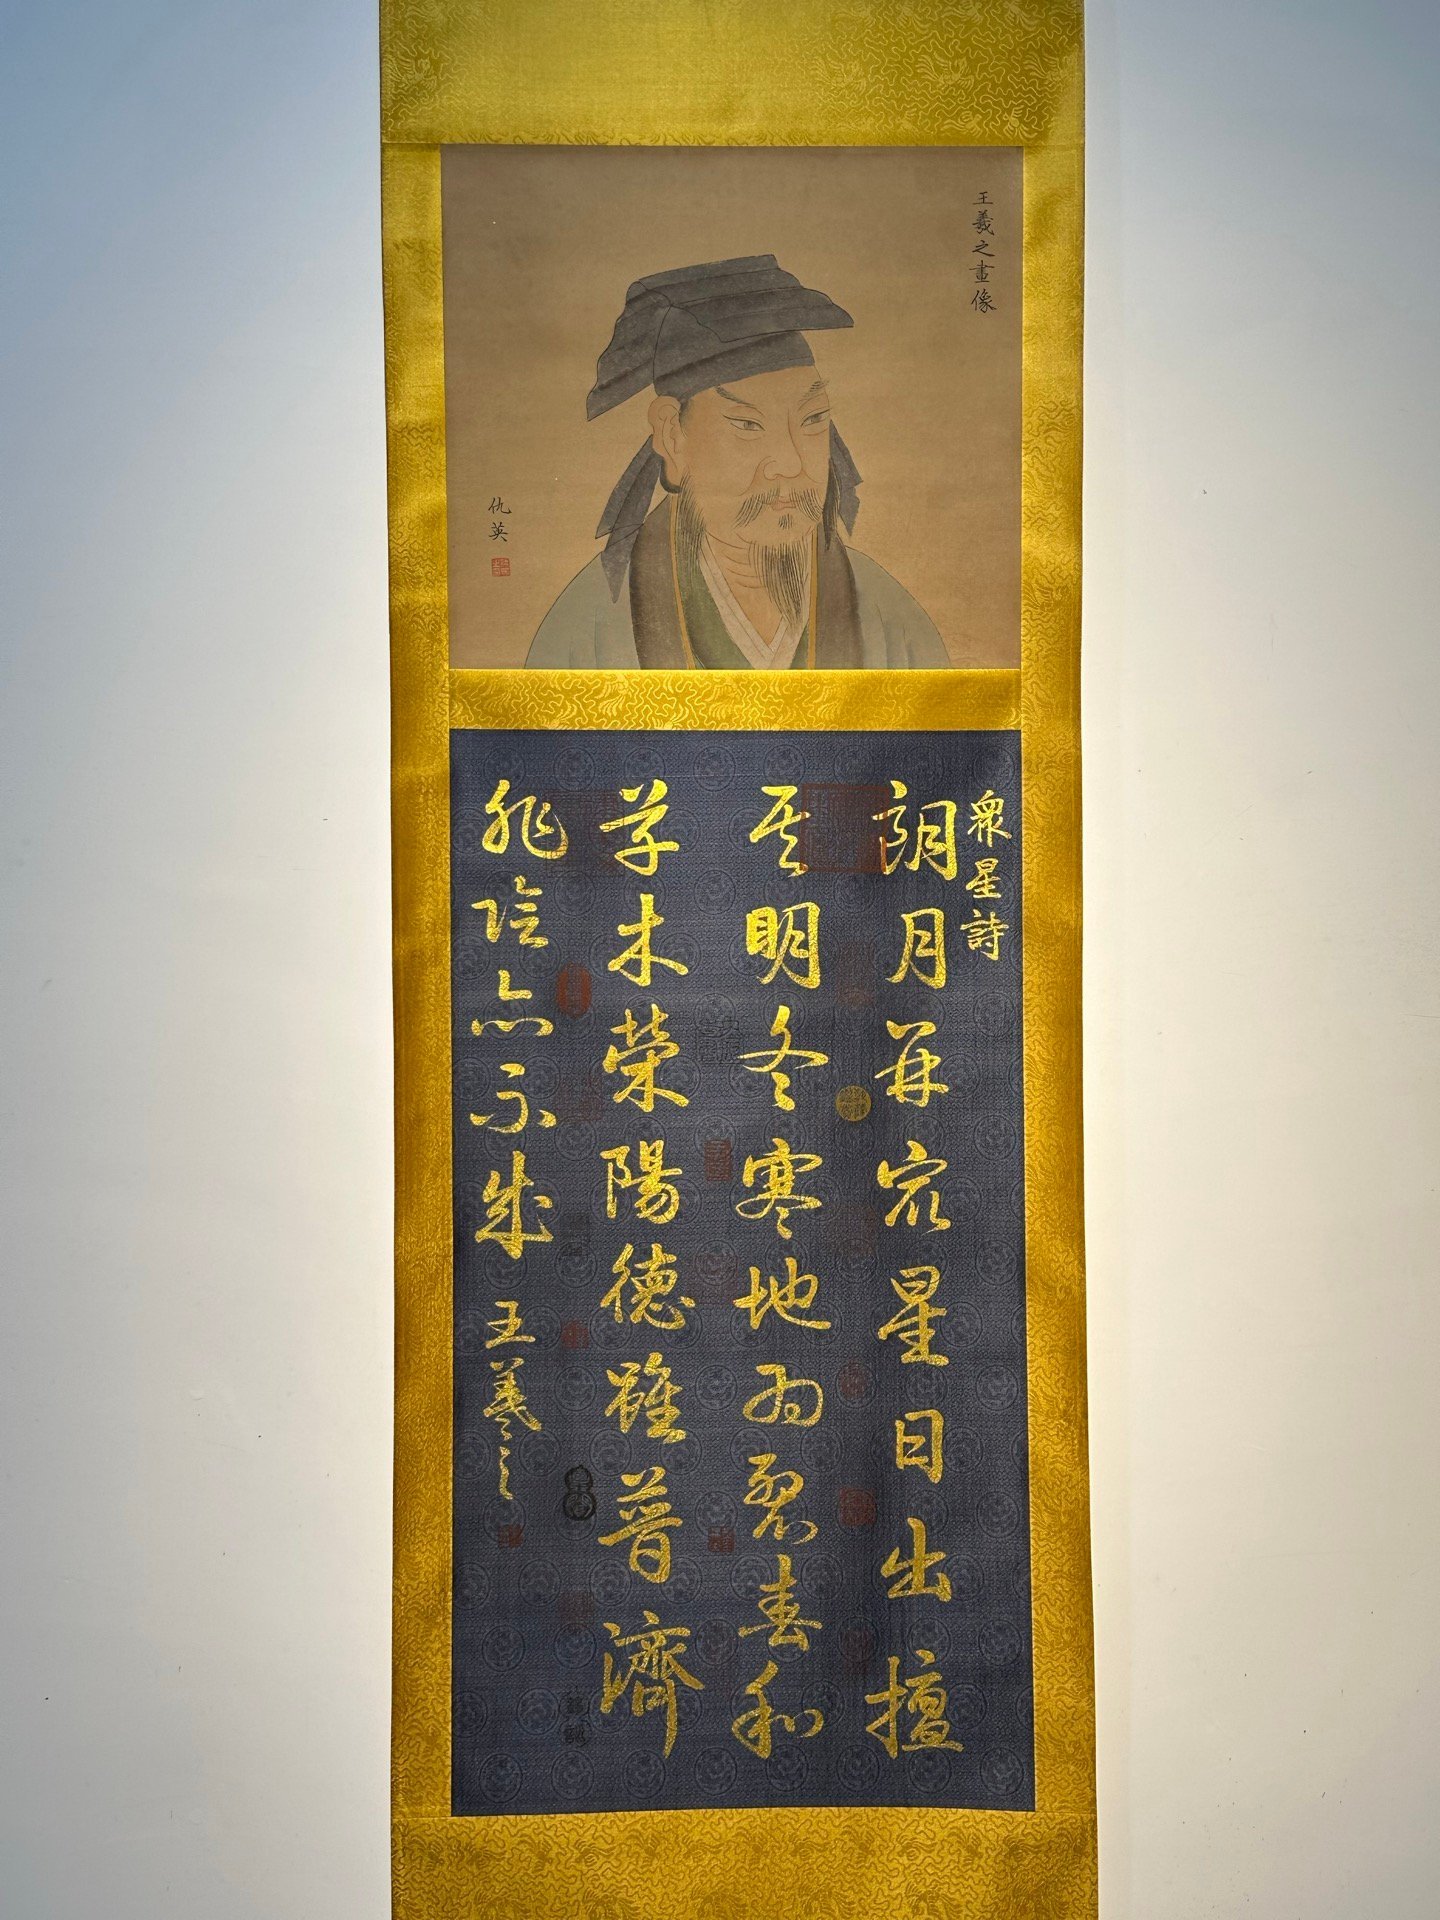 王羲之畫像
仇英
眾星詩
朗月並眾星日出擅
其明冬寒地為裂春和
草木榮陽德雖普濟
非陰亦不成
王羲之